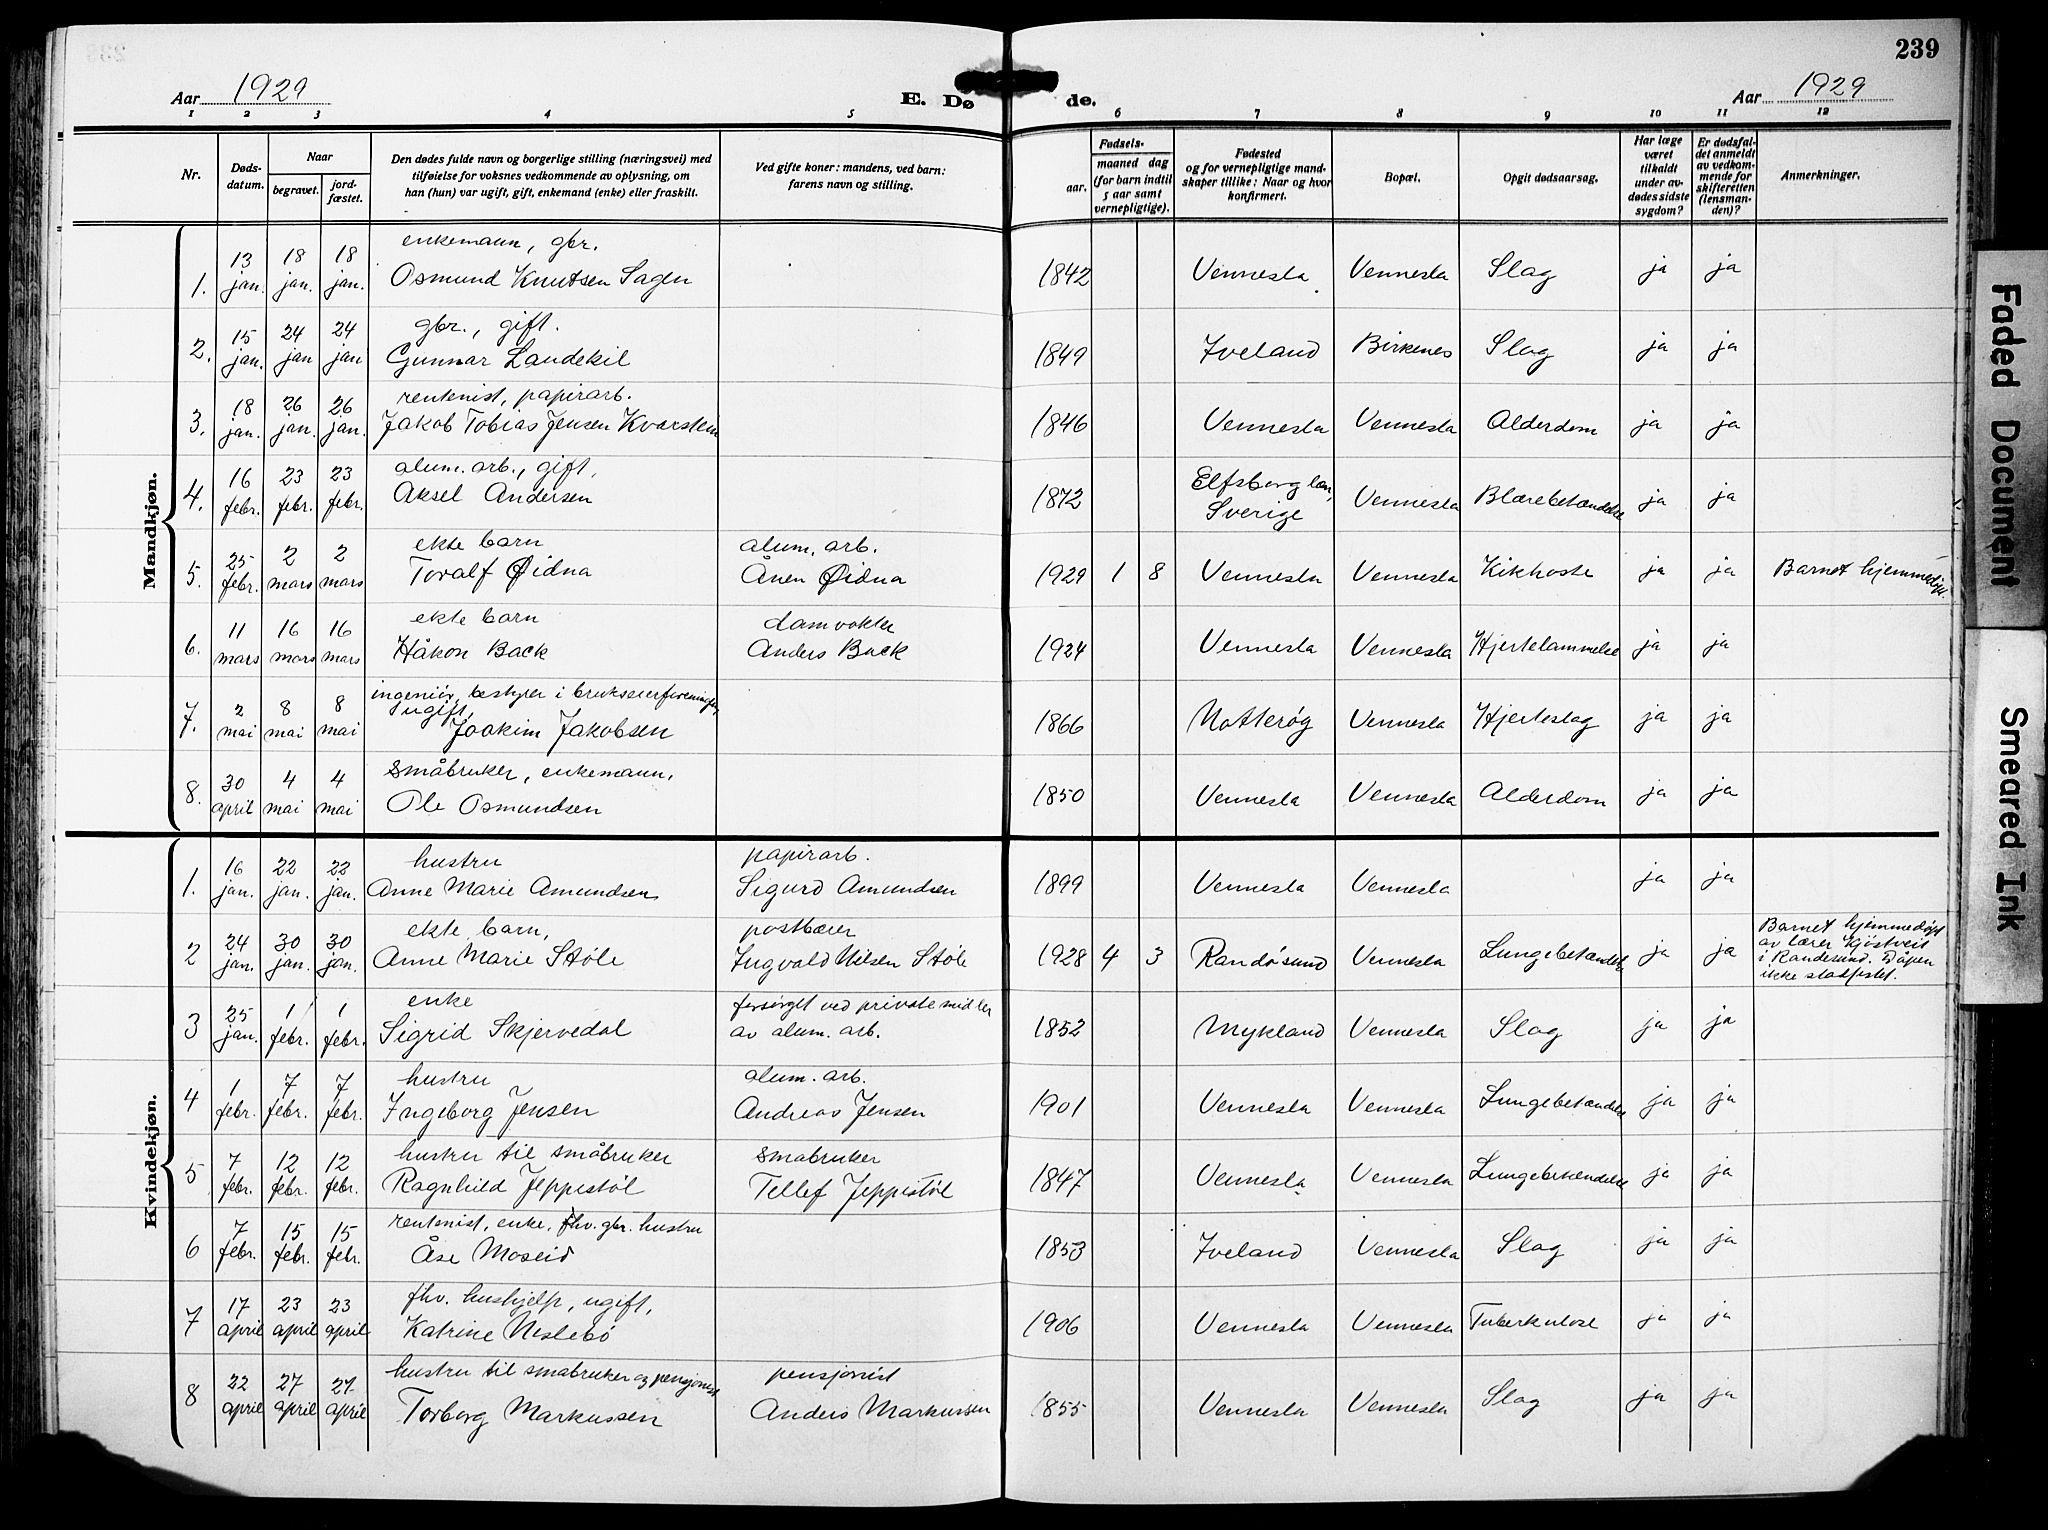 239
Aar 1929
E. Dø de.
Aar 1929
1 2 3 4 5 6 7 8 9 10 11 12
Nr.
Døds-
datum.
Naar
begravet.
jord-
fæstet.
Den dødes fulde navn og borgerlige stilling (næringsvei) med
tilføielse for voksnes vedkommende av oplysning, om
han (hun) var ugift, gift, enkemand (enke) eller fraskilt.
Ved gifte koner: mandens, ved barn:
farens navn og stilling.
Fødsels-
aar.
maaned dag
(for barn indtil
5 aar samt
vernepligtige).
Fødested
og for vernepligtige mand-
skaper tillike: Naar og hvor
konfirmert.
Bopæl.
Opgit dødsaarsag.
Har læge
været
tilkaldt
under av-
dødes sidste
sygdom?
Er dødsfal-
det anmeldt
av vedkom-
mende for
skifteretten
(lensman-
den)?
Anmerkninger.
Mandkjøn.
enkemann, gbr.
1. 13 jan. 18 jan. 18 jan. Osmund Knutsen Sagen 1842 Vennesla Vennesla Slag ja ja
gbr., gift.
2. 15 jan. 24 jan 24 jan Gunnar Landekil 1849 Iveland Birkenes Slag ja ja
rentenist, papirarb.
3. 18 jan. 26 jan. 26 jan. Jakob Tobias Jensen Kvarstein 1846 Vennesla Vennesla Alderdom ja ja
alum. arb., gift,
4. 16 febr. 23 febr. 23 febr. Aksel Andersen 1872 Elfsborg län, Sverige Vennesla Blærebetændelse ja ja
ekte barn alum. arb.
5. 25 febr. 2 mars 2 mars Toralf Øidna Ånen Øidna 1929 1 8 Vennesla Vennesla Kikhoste ja ja Barnet hjemmedøpt.
ekte barn damvokter
6. 11 mars 16 mars 16 mars Håkon Back Anders Back 1924 Vennesla Vennesla Hjertelammelse ja ja
ingeniör, bestyrer i brukseierforeningen,
ugift,
7. 2 mai 8 mai 8 mai Joakim Jakobsen 1866 Notterøy Vennesla Hjerteslag ja ja
småbruker, enkemann,
8. 30 april 4 mai 4 mai Ole Osmundsen 1850 Vennesla Vennesla Alderdom ja ja
Kvindekjøn.
hustru papirarb.
1. 16 jan. 22 jan. 22 jan. Anne Marie Amundsen Sigurd Amundsen 1899 Vennesla Vennesla ja ja
ekte barn, postbærer
2 24 jan. 30 jan. 30 jan. Anne Marie Støle Ingvald Nilsen Støle 1928 4 3 Randøsund Vennesla Lungebetændelse ja ja Barnet hjemmedøpt
av lærer Kjöstveit
i Randesund. Dåpen
ikke stadfestet.
enke forsörget ved private midler
3 25 jan. 1 febr. 1 febr. Sigrid Skjervedal av alum. arb. 1852 Mykland Vennesla Slag ja ja
hustru alum. arb.
4 1 febr. 7 febr. 7 febr. Ingeborg Jensen Andreas Jensen 1901 Vennesla Vennesla Lungebetændelse ja ja
hustru til småbruker småbruker
5 7 febr. 12 febr. 12 febr. Ragnhild Jeppestøl Tellef Jeppestøl 1847 Vennesla Vennesla Lungebetændelse ja ja
rentenist, enke, fhv. gbr. hustru
6 7 febr. 15 febr. 15 febr. Åse Moseid 1853 Iveland Vennesla Slag ja ja
fhv. hushjelp, ugift,
7 17 april 23 april 23 april Katrine Neslebö 1906 Vennesla Vennesla Tuberkulose ja ja
hustru til småbruker og pensjonist pensjonist
8 22 april 27 april 27 april Torborg Markussen Anders Markussen 1855 Vennesla Vennesla Slag ja ja
Faded Document
Smeared Ink